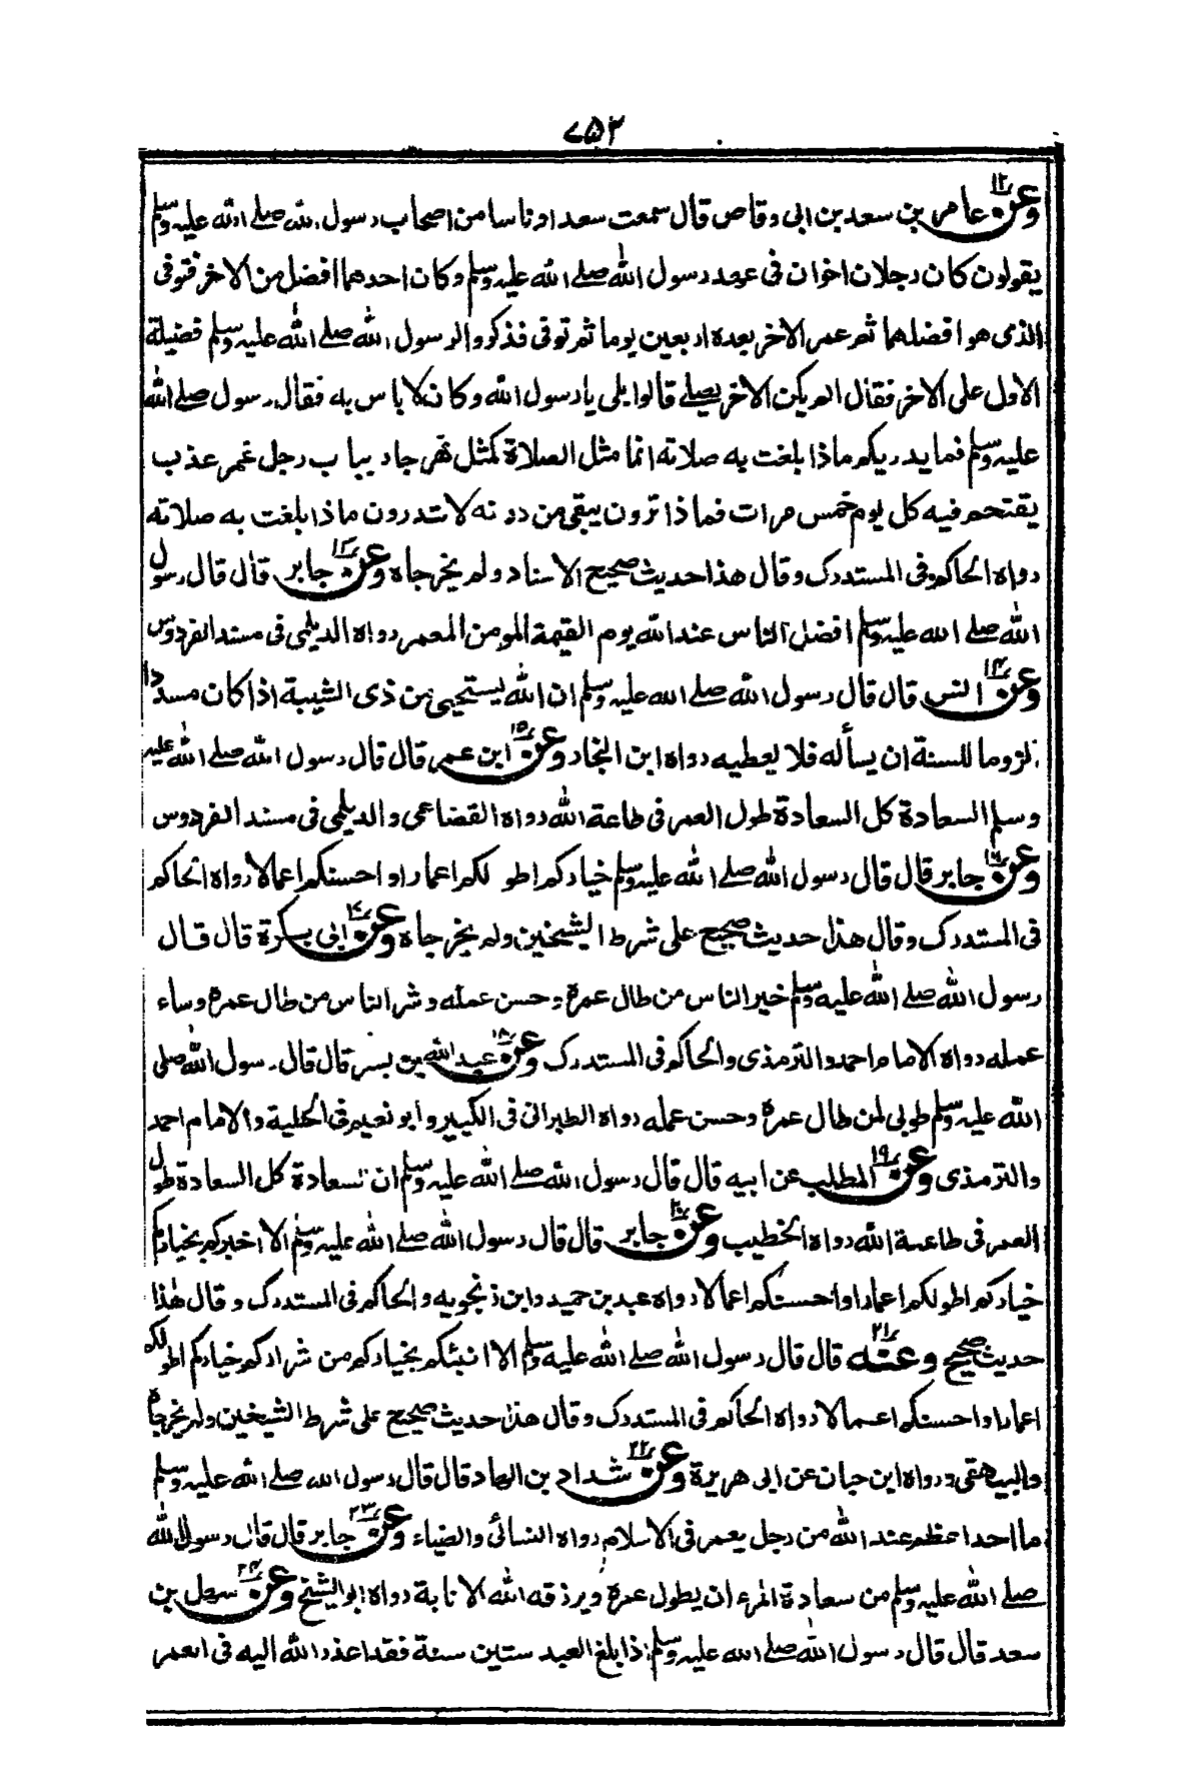 ٧٥٢
وعن ١٢ عامر بن سعد بن ابى وقاص قال سمعت سعدا وناسا من اصحاب رسول الله صلے الله عليہ وسلم
يقولون كان رجلان اخوان فى عهد رسول الله صلے الله عليہ وسلم وكان احدهما افضل من الاخر فتوفى
الذى هو افضلهما ثم عمر الاخر بعده اربعين يوما ثم توفى فذكروا لرسول الله صلے الله عليہ وسلم فضيلة
الاول على الاخر فقال الم يكن الاخر يصلے قالوا بلى يا رسول الله وكان لا باس به فقال رسول صلے الله
عليہ وسلم فما يدريكم ماذا بلغت به صلاته انما مثل الصلاة كمثل نهر جار بباب رجل غمر عذب
يقتحم فيه كل يوم خمس مرات فماذا ترون يبقى من درنه لا تدرون ماذا بلغت به صلاته
رواه الحاكم فى المستدرك وقال هذا حديث صحيح الاسناد ولم يخرجاه وعن ١٣ جابر قال قال رسول
الله صلے الله عليہ وسلم افضل الناس عند الله يوم القيمة المومن المعمر رواه الديلمى فى مسند الفردوس
وعن ١٤ انس قال قال رسول الله صلے الله عليہ وسلم ان الله يستحيى من ذى الشيبة اذا كان مسددا
لزوما للسنة ان يسأله فلا يعطيه رواه ابن النجار وعن ١٥ ابن عمر قال قال رسول الله صلے الله عليہ
وسلم السعادة كل السعادة طول العمر فى طاعة الله رواه القضاعى والديلمى فى مسند الفردوس
وعن ١٦ جابر قال قال رسول الله صلے الله عليہ وسلم خياركم اطولكم اعمارا واحسنكم اعمالا رواه الحاكم
فى المستدرك وقال هذا حديث صحيح على شرط الشيخين ولم يخرجاه وعن ١٧ ابى بكرة قال قال
رسول الله صلے الله عليه وسلم خير الناس من طال عمره وحسن عمله وشر الناس من طال عمره وساء
عمله رواه الامام احمد والترمذى والحاكم فى المستدرك وعن ١٨ عبد الله بن بسر قال قال رسول الله صلى
الله عليہ وسلم طوبى لمن طال عمره وحسن عمله رواه الطبرانى فى الكبير وابو نعيم فى الحلية والامام احمد
والترمذى وعن ١٩ المطلب عن ابيه قال قال رسول الله صلے الله عليہ وسلم ان السعادة كل السعادة طول
العمر فى طاعة الله رواه الخطيب وعن ٢٠ جابر قال قال رسول الله صلے الله عليہ وسلم الا اخبركم بخياركم
خياركم اطولكم اعمارا واحسنكم اعمالا رواه عبد بن حميد وابن زنجويه والحاكم فى المستدرك وقال هذا
حديث صحيح وعنه ٢١ قال قال رسول الله صلے الله عليہ وسلم الا انبئكم بخياركم من شراركم خياركم اطولكم
اعمارا واحسنكم اعمالا رواه الحاكم فى المستدرك وقال هذا حديث صحيح على شرط الشيخين ولم يخرجاه
والبيهقى ورواه ابن حبان عن ابى هريرة وعن ٢٢ شداد بن الهاد قال قال رسول الله صلے الله عليہ وسلم
ما احد اعظم عند الله من رجل يعمر فى الاسلام رواه النسائى والضياء وعن ٢٣ جابر قال قال رسول الله
صلے الله عليہ وسلم من سعادة المرء ان يطول عمره ويرزقه الله الانابة رواه ابو الشيخ وعن ٢٤ سهل بن
سعد قال قال رسول الله صلے الله عليہ وسلم اذا بلغ العبد ستين سنة فقد اعذر الله اليه فى العمر